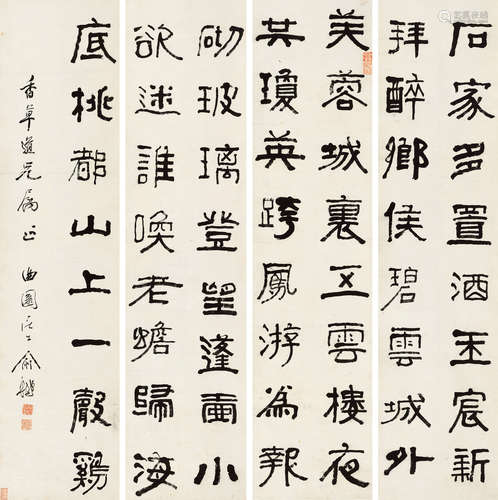 后家多置酒玉宸新
拜醉鄉侯碧雲城外
芙蓉城裏五雲樓夜
其瓊英跨鳳游為報
砌玻璃登望蓬壺小
欲迷誰喚老蟾歸海
底桃都山上一聲鷄
香草道兄屬正 曲園居士俞樾